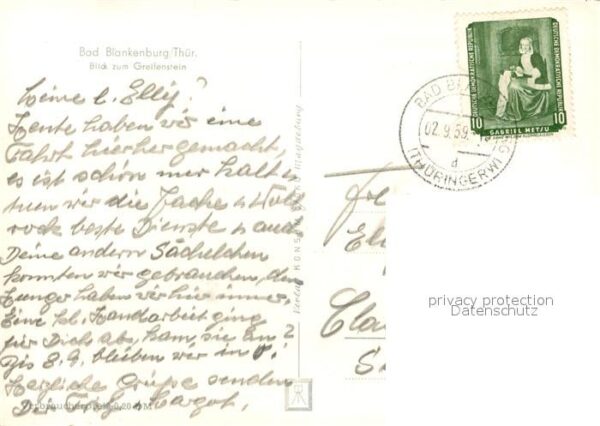 Bad Blankenburg/Thür.
Blick zum Greifenstein
Meine l. Elly!
Heute haben wir eine
Fahrt hierher gemacht,
es ist schön nur kalt
nun wir die Jacke
rock beste Dienste
Deine andern Sächelchen
konnten wir gebrauchen, den
Hunger haben wir hier immer.
Eine kl. Handarbeit ging
für Dich ab, kam sie an?
Bis 8.9. bleiben wir in O.!
Herzliche Grüße senden
Dir Margot,
Verbraucherpreis 0,20 DM
Verlag KONSUM Magdeburg
Fr
El
Cla
S
BAD BLA
02.9.59
d
(THÜRINGERW)
DEUTSCHE DEMOKRATISCHE REPUBLIK
DEUTSCHE DEMOKRATISCHE REPUBLIK
10
GABRIEL METSU
10
privacy protection
Datenschutz